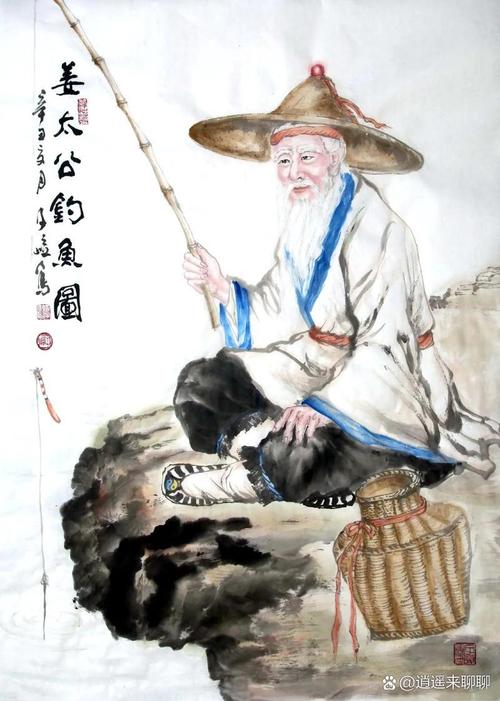 姜太公釣魚圖
辛丑夏月
@逍遥来聊聊